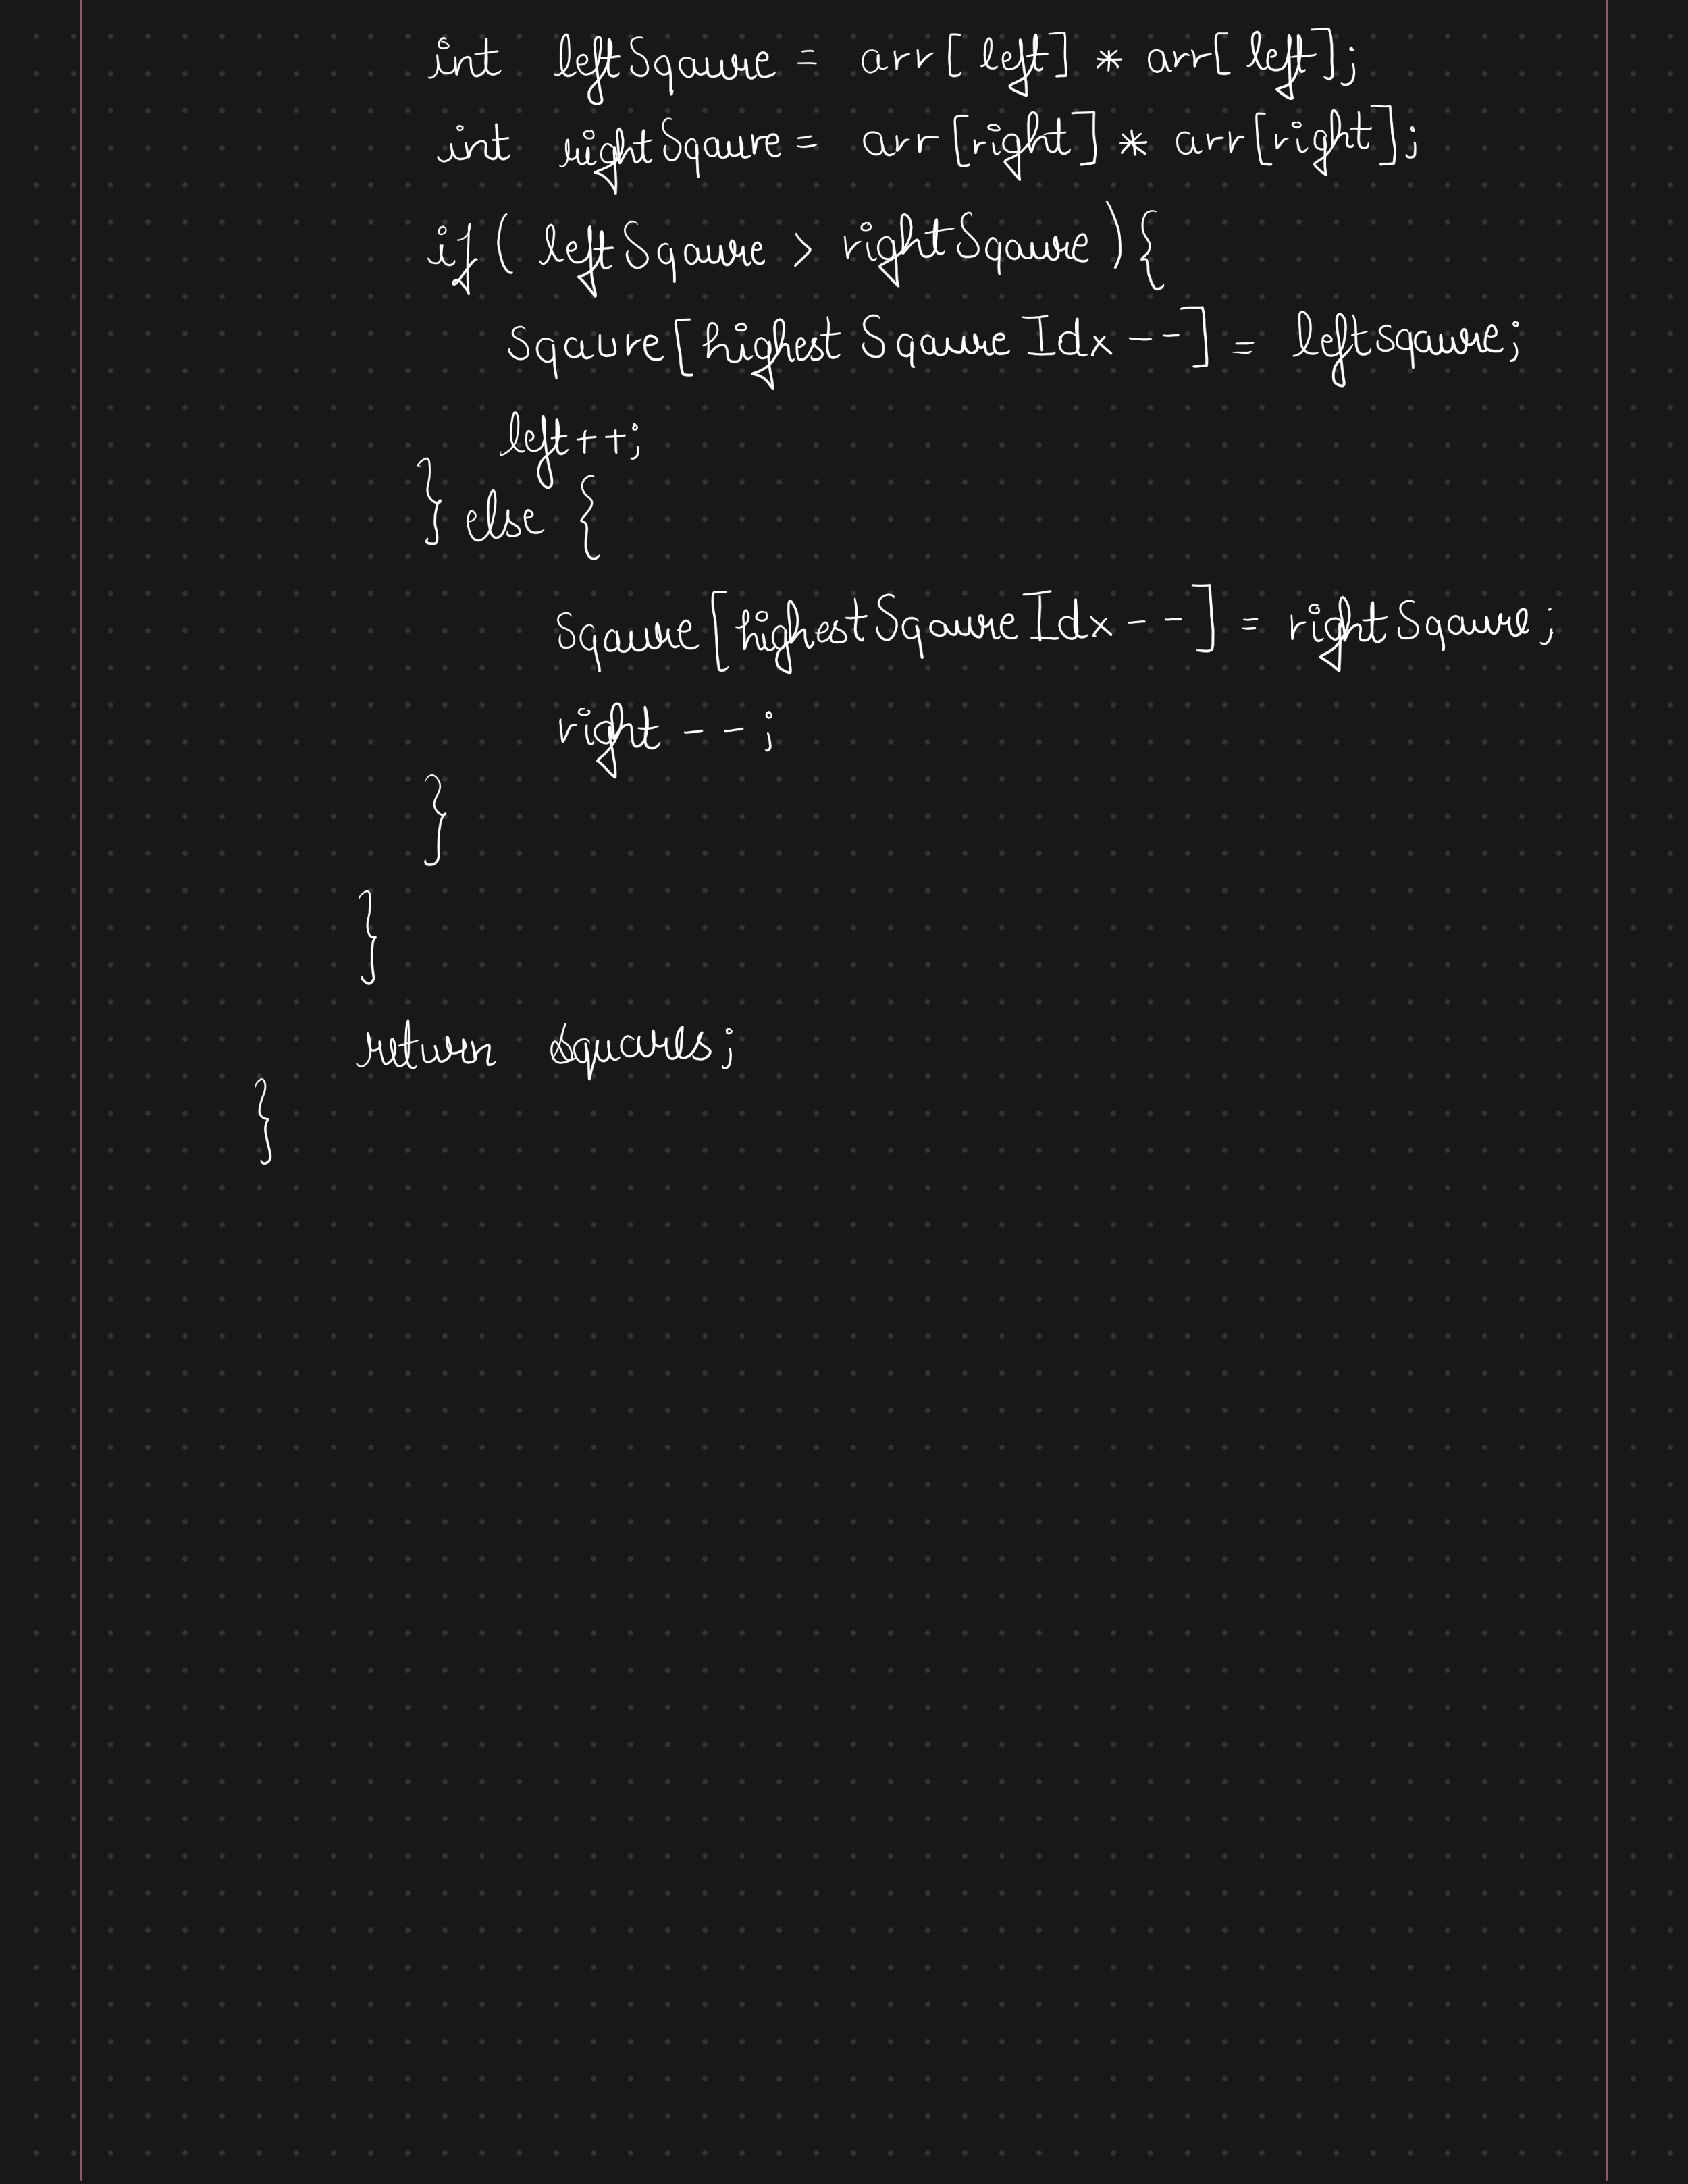 int leftSqaure = arr[left] * arr[left];
int rightSqaure = arr[right] * arr[right];
if (leftSqaure > rightSqaure){
sqaure[highestSqaureIdx--] = leftsqaure;
left++;
} else {
sqaure[highestSqaureIdx--] = rightSqaure;
right--;
}
}
return squares;
}